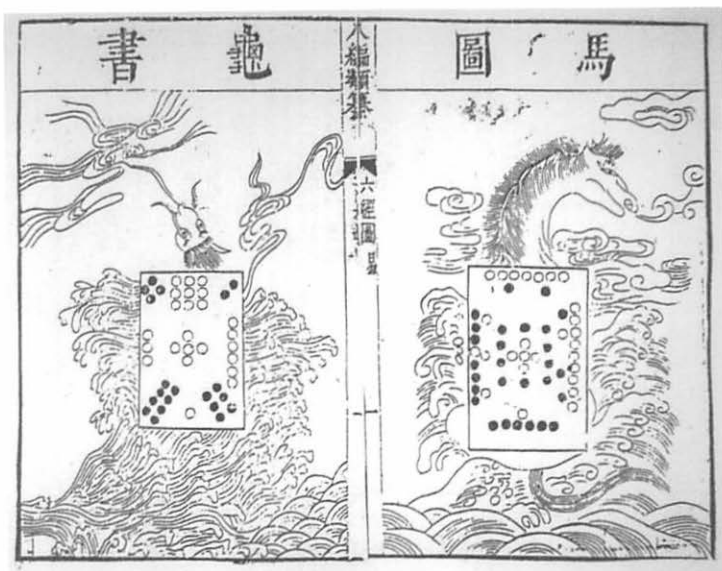 馬圖
八編類纂
六經圖
龜書